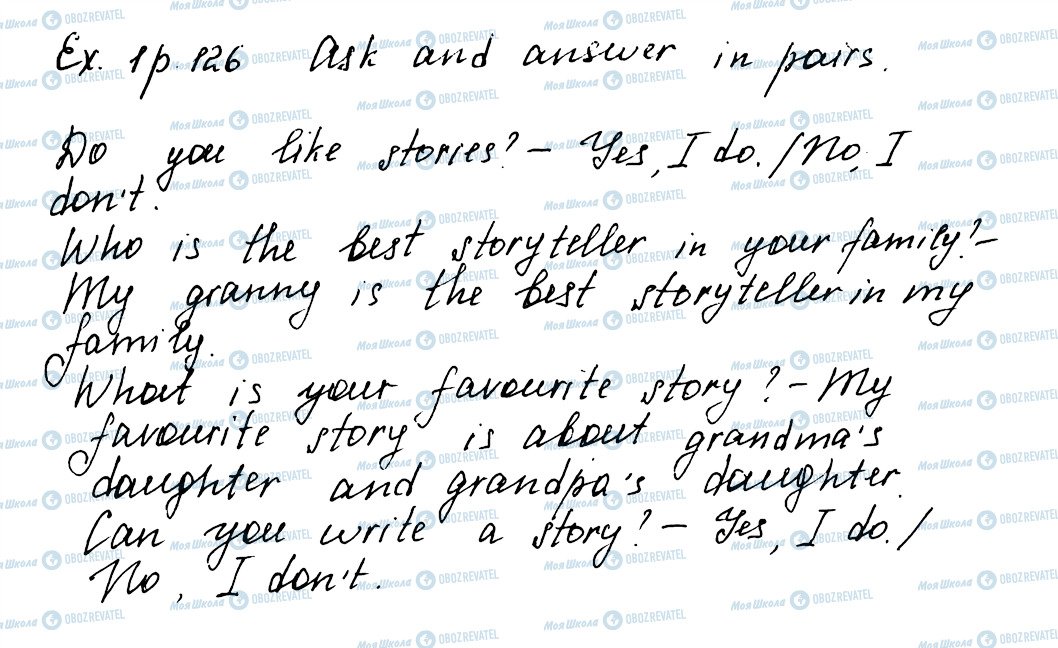 Ex. 1 p. 126 Ask and answer in pairs.
Do you like stories? – Yes, I do. / No, I
don't.
Who is the best storyteller in your family? –
My granny is the best storyteller in my
family.
What is your favourite story? – My
favourite story is about grandma's
daughter and grandpa's daughter.
Can you write a story? – Yes, I do. /
No, I don't.